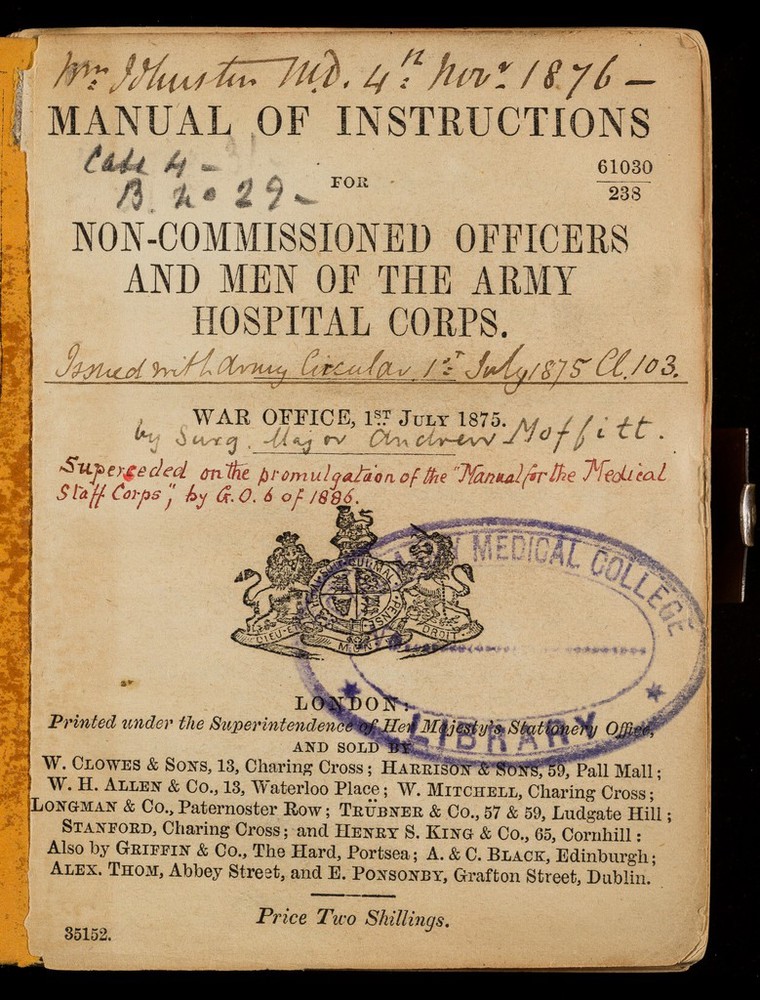 Wm: Johnston M.D. 4th Novr. 1876 —
MANUAL OF INSTRUCTIONS
Case 4 -
61030
FOR
238
B. no 29 -
NON-COMMISSIONED OFFICERS
AND MEN OF THE ARMY
HOSPITAL CORPS.
Issued with Army Circular 1st July 1875 Cl. 103.
WAR OFFICE, 1ST JULY 1875.
by Surg. Major Andrew Moffitt.
Superceded on the promulgation of the "Manual for the Medical
Staff Corps", by G.O. 6 of 1886.
MEDICAL COLLEGE
DIEU ET MON DROIT
LONDON:
Printed under the Superintendence of Her Majesty's Stationery Office,
LIBRARY
AND SOLD BY
W. CLOWES & SONS, 13, Charing Cross; HARRISON & SONS, 59, Pall Mall;
W. H. ALLEN & Co., 13, Waterloo Place; W. MITCHELL, Charing Cross;
LONGMAN & Co., Paternoster Row; TRÜBNER & Co., 57 & 59, Ludgate Hill;
STANFORD, Charing Cross; and HENRY S. KING & Co., 65, Cornhill:
Also by GRIFFIN & Co., The Hard, Portsea; A. & C. BLACK, Edinburgh;
ALEX. THOM, Abbey Street, and E. PONSONBY, Grafton Street, Dublin.
Price Two Shillings.
35152.